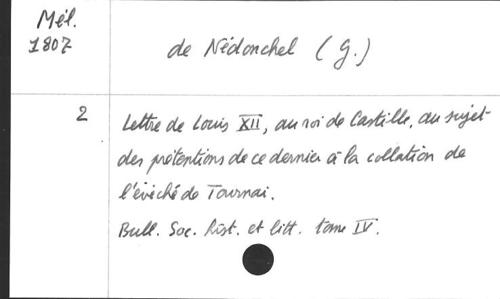 Mél.
1807
de Nédonchel (G.)
2
Lettre de Louis XII, au roi de Castille, au sujet
des prétentions de ce dernier à la collation de
l'évêché de Tournai.
Bull. Soc. hist. et litt. tome IV.